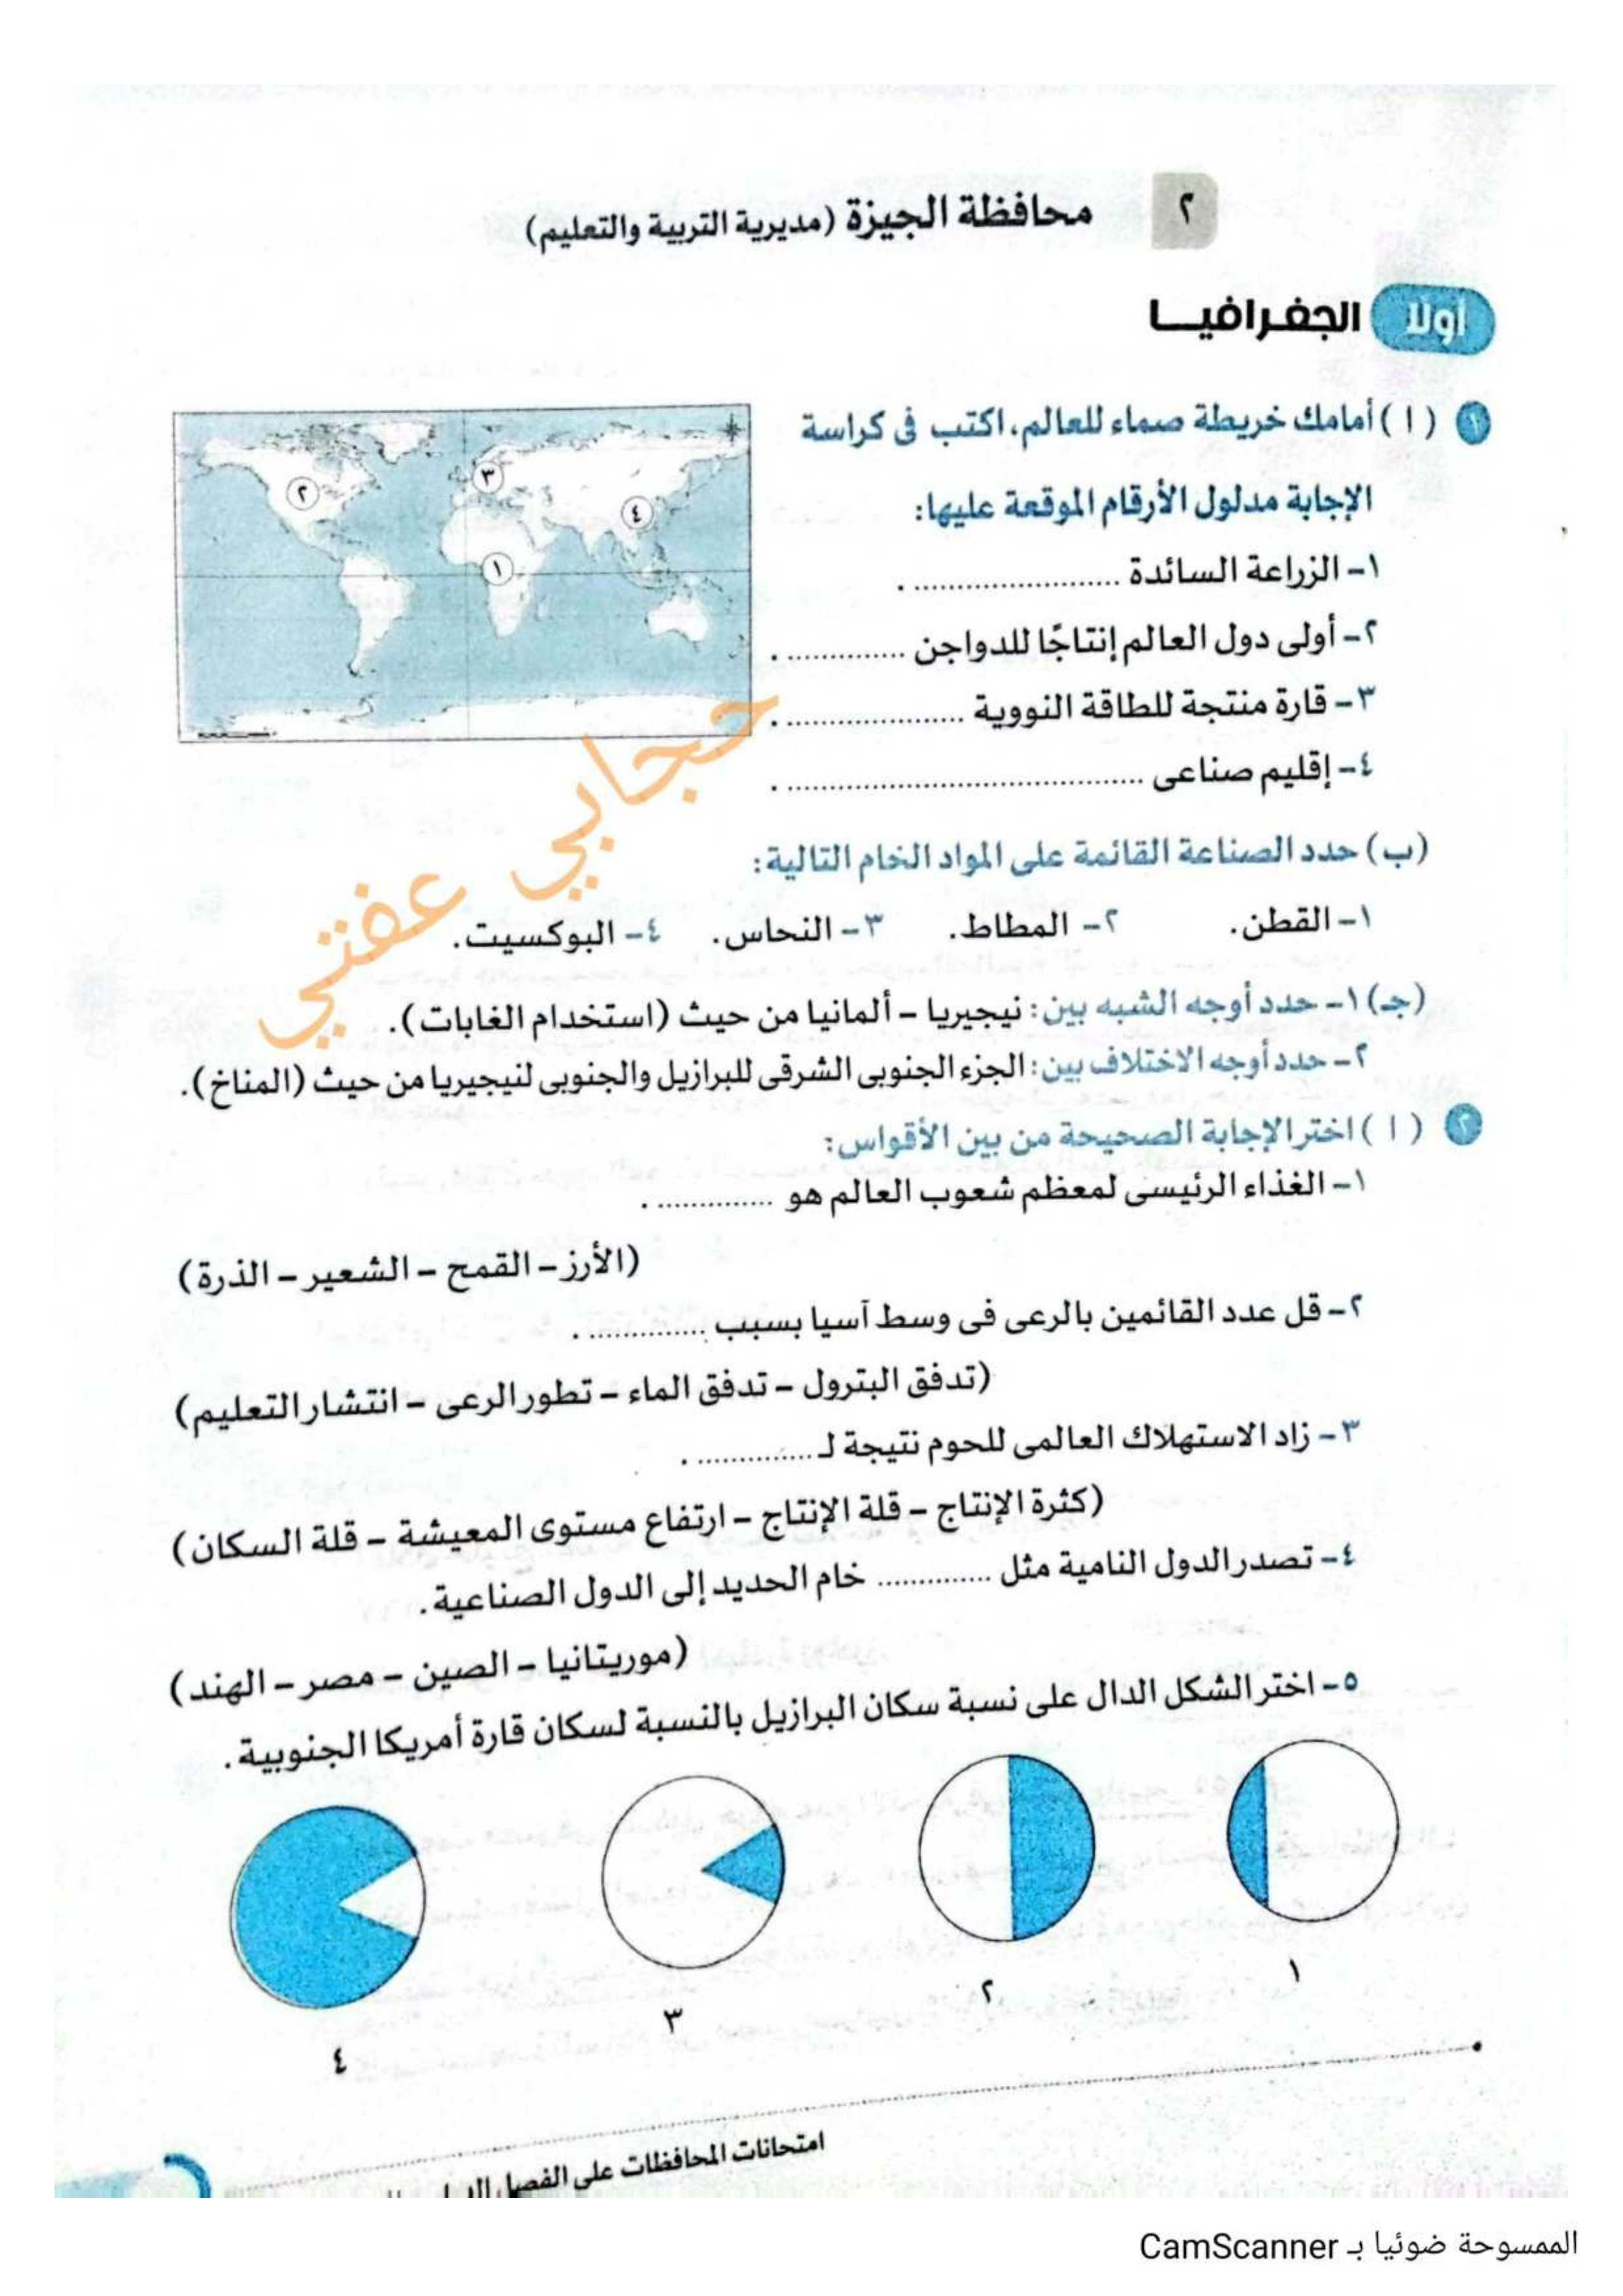 ٢ محافظة الجيزة (مديرية التربية والتعليم)
أولا الجغرافيا
١ ( ١ ) أمامك خريطة صماء للعالم، اكتب فى كراسة
الإجابة مدلول الأرقام الموقعة عليها:
١- الزراعة السائدة ..................... .
٢- أولى دول العالم إنتاجًا للدواجن ............. .
٣- قارة منتجة للطاقة النووية ................... .
٤- إقليم صناعى ..................................... .
٢
٣
٤
١
حجابي عفتي
(ب) حدد الصناعة القائمة على المواد الخام التالية:
١- القطن. ٢- المطاط. ٣- النحاس. ٤- البوكسيت.
(جـ) ١- حدد أوجه الشبه بين: نيجيريا - ألمانيا من حيث (استخدام الغابات).
٢- حدد أوجه الاختلاف بين: الجزء الجنوبى الشرقى للبرازيل والجنوبى لنيجيريا من حيث (المناخ).
٢ ( ١ ) اختر الإجابة الصحيحة من بين الأقواس:
١- الغذاء الرئيسى لمعظم شعوب العالم هو ............. .
(الأرز - القمح - الشعير - الذرة)
٢- قل عدد القائمين بالرعى فى وسط آسيا بسبب ............. .
(تدفق البترول - تدفق الماء - تطور الرعى - انتشار التعليم)
٣- زاد الاستهلاك العالمى للحوم نتيجة لـ ............. .
(كثرة الإنتاج - قلة الإنتاج - ارتفاع مستوى المعيشة - قلة السكان)
٤- تصدر الدول النامية مثل ............. خام الحديد إلى الدول الصناعية.
(موريتانيا - الصين - مصر - الهند)
٥- اختر الشكل الدال على نسبة سكان البرازيل بالنسبة لسكان قارة أمريكا الجنوبية.
١
٢
٣
٤
امتحانات المحافظات على الفصل
الممسوحة ضوئيا بـ CamScanner